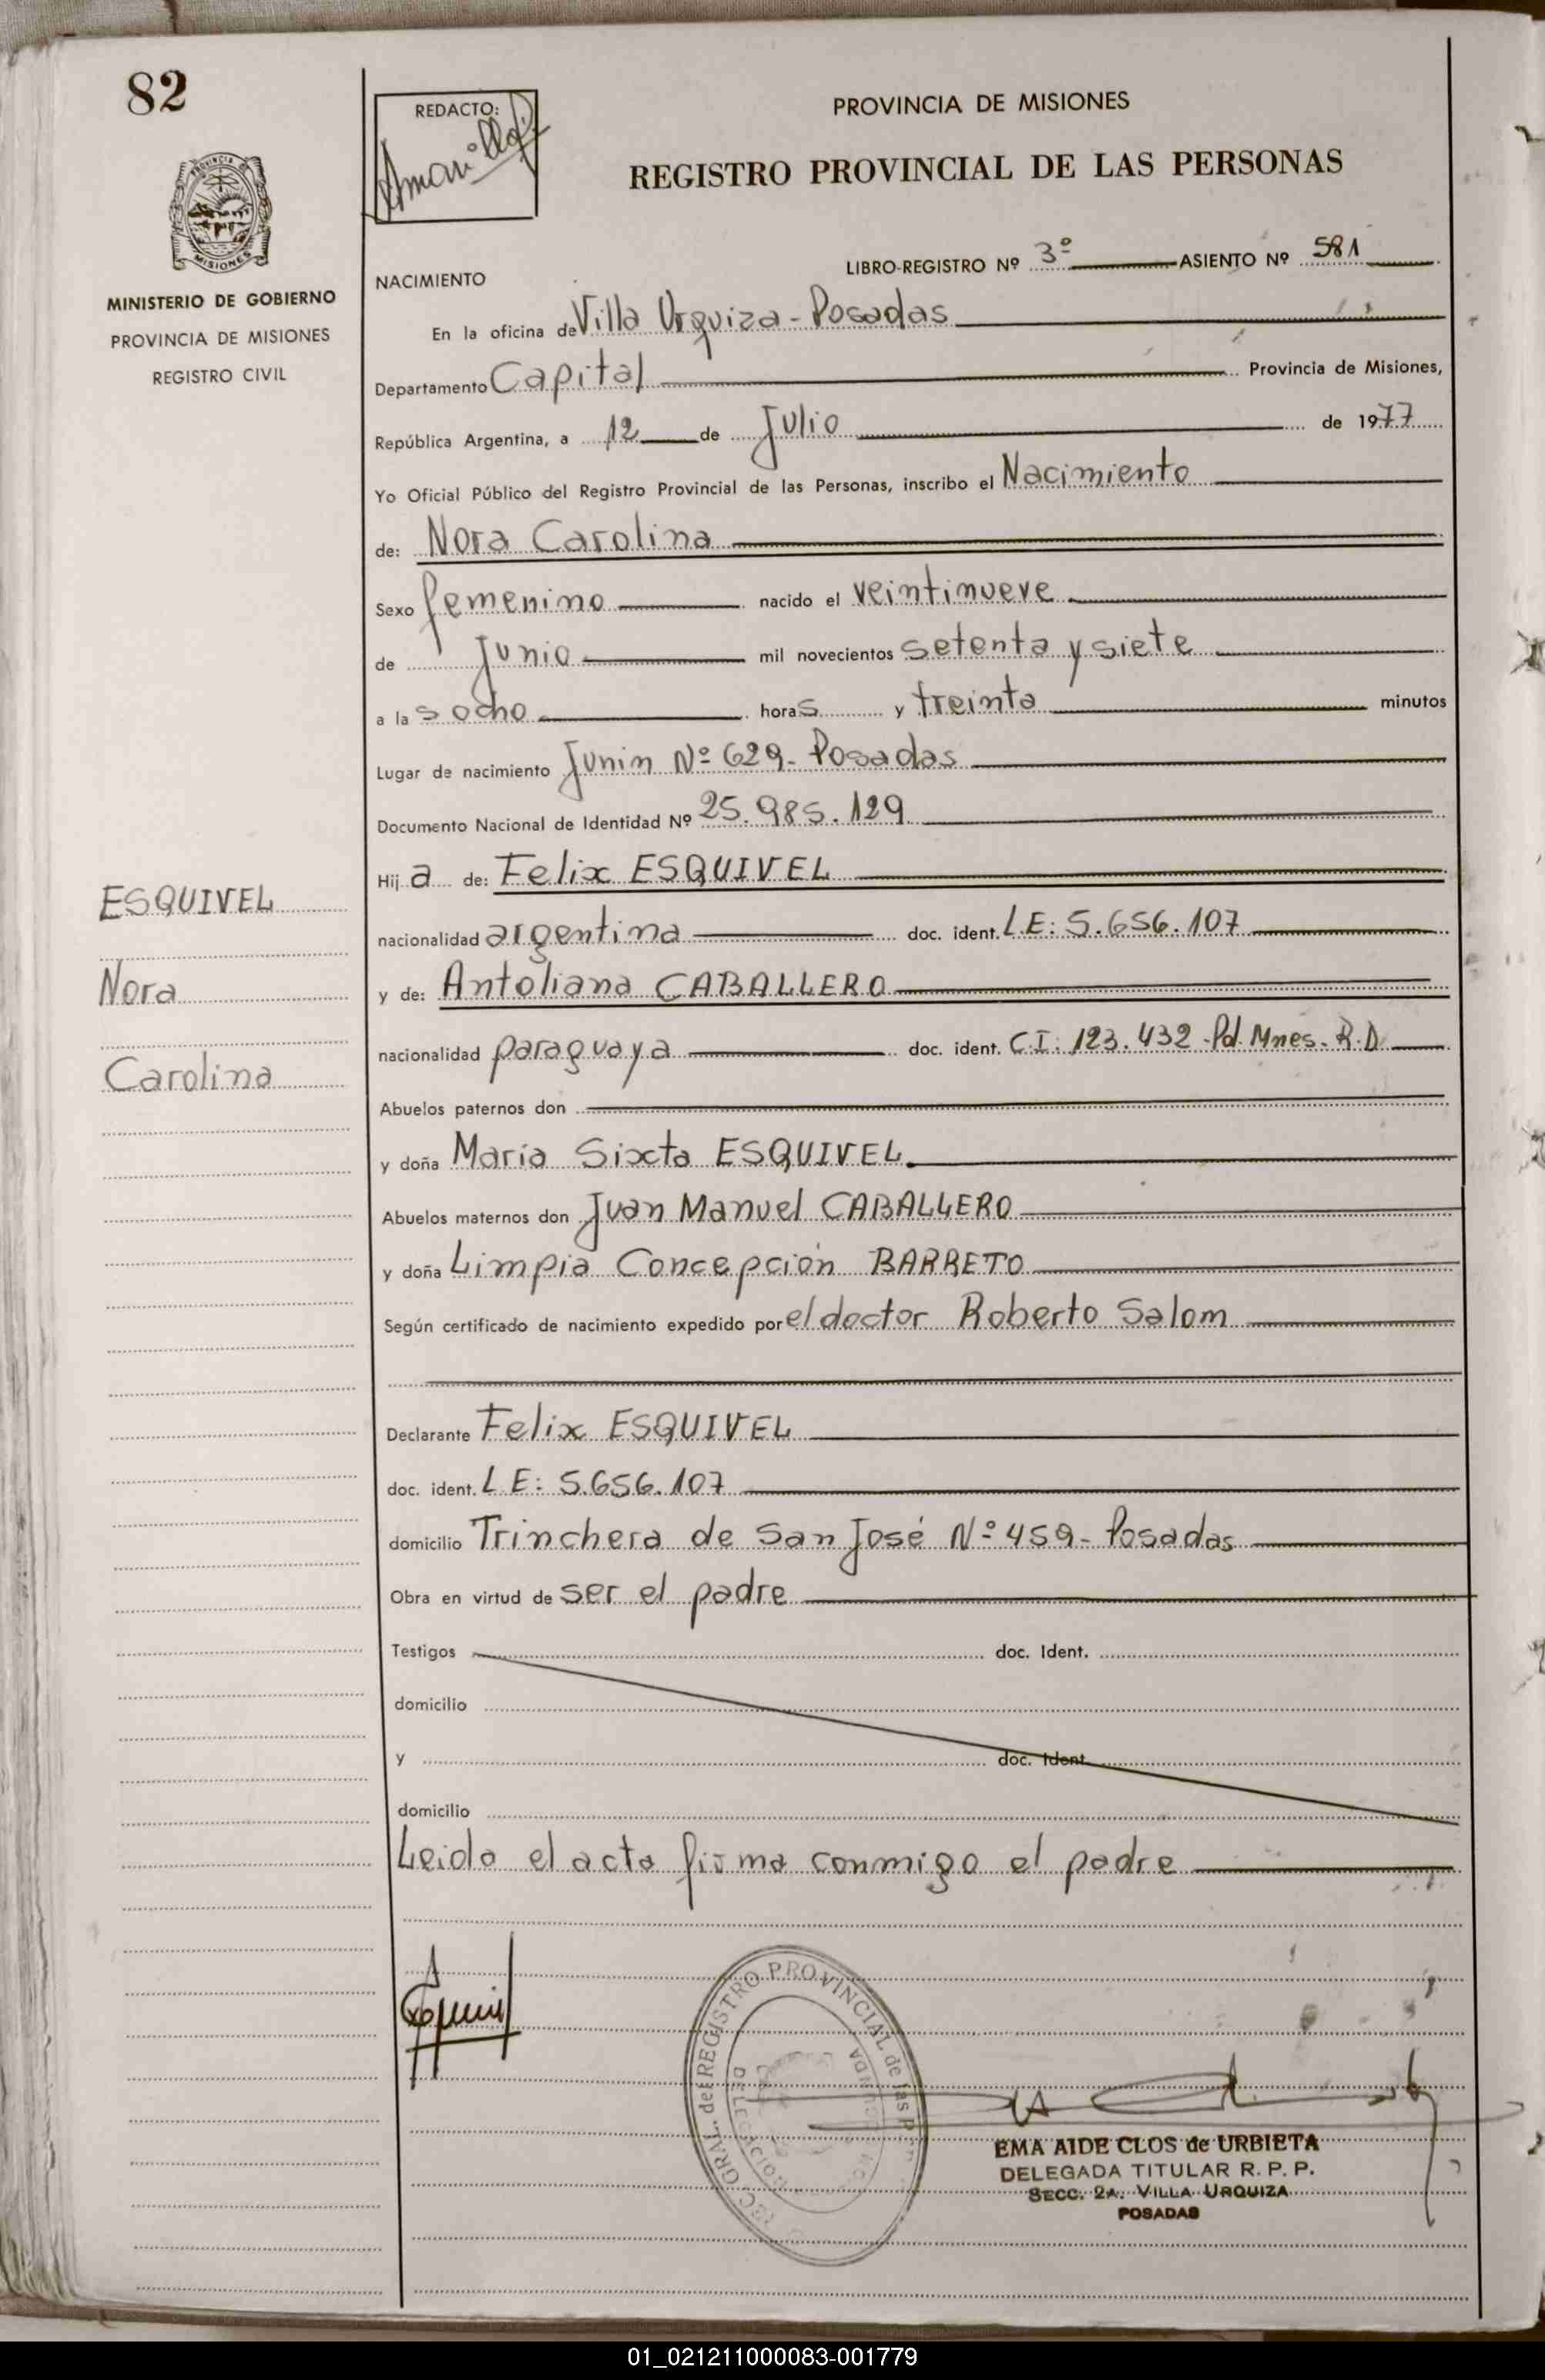 82
REDACTO:
PROVINCIA DE MISIONES
REGISTRO PROVINCIAL DE LAS PERSONAS
PROVINCIA
MISIONES
MINISTERIO DE GOBIERNO
PROVINCIA DE MISIONES
REGISTRO CIVIL
LIBRO-REGISTRO Nº 3º ASIENTO Nº 581
NACIMIENTO
En la oficina de Villa Urquiza - Posadas
Departamento Capital Provincia de Misiones,
República Argentina, a 12 de Julio de 1977
Yo Oficial Público del Registro Provincial de las Personas, inscribo el Nacimiento
de: Nora Carolina
Sexo femenino nacido el veintinueve
de Junio mil novecientos setenta y siete
a las ocho horas y treinta minutos
Lugar de nacimiento Junin Nº 629 - Posadas
Documento Nacional de Identidad Nº 25.985.129
Hija de: Felix ESQUIVEL
nacionalidad argentina doc. ident. L.E: 5.656.107
y de: Antoliana CABALLERO
nacionalidad paraguaya doc. ident. C.I: 123.432 - Pol. Mnes. R.D
Abuelos paternos don
y doña Maria Sixta ESQUIVEL.
Abuelos maternos don Juan Manuel CABALLERO
y doña Limpia Concepción BARRETO
Según certificado de nacimiento expedido por el doctor Roberto Salom
Declarante Felix ESQUIVEL
doc. ident. L E: 5.656.107
domicilio Trinchera de San José Nº 459 - Posadas
Obra en virtud de ser el padre
Testigos doc. Ident.
domicilio
y doc. Ident.
domicilio
Leida el acta firma conmigo el padre
ESQUIVEL
Nora
Carolina
REC. GRAL. del REGISTRO PROVINCIAL de las
EMA AIDE CLOS de URBIETA
DELEGADA TITULAR R. P. P.
SECC. 2A. VILLA URQUIZA
POSADAS
01_021211000083-001779